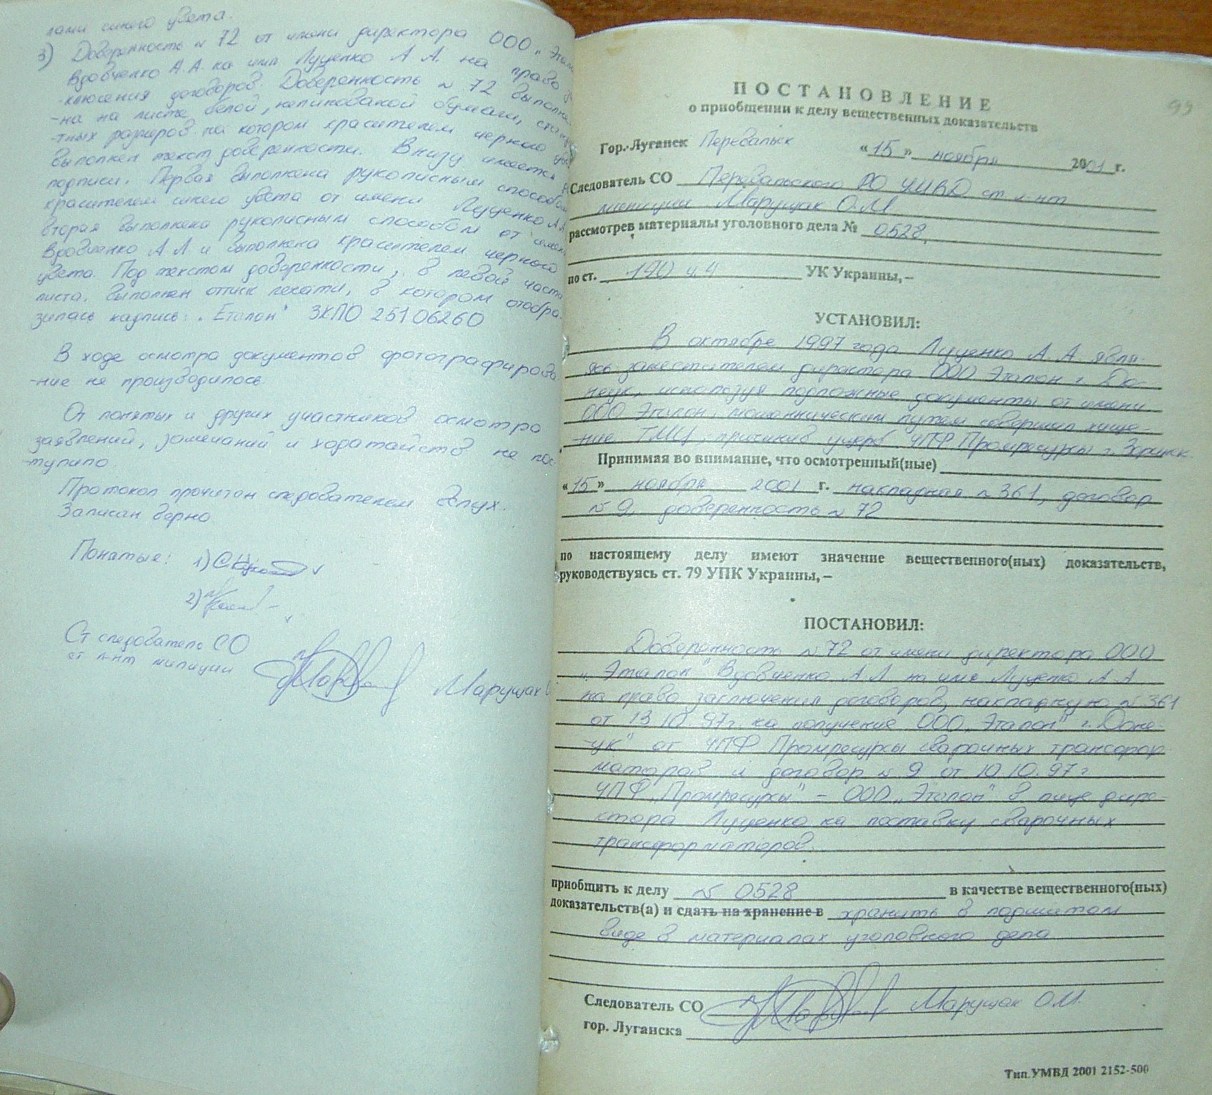 лами синего цвета.
3) Доверенность № 72 от имени директора ООО „Этало
Вдовченко А.А. на имя Луценко А.А. на право
-ключения договоров. Доверенность № 72 выполне
-на на листе белой, нелинованой бумаги, стан
-тных размеров на котором красителем черного цве
выполнен текст доверенности. Внизу имеется
подписи. Первая выполнена рукописным способом
красителем синего цвета от имени Луценко А.А.
вторая выполнена рукописным способом от имени
Вдовченко А.А. и выполнена красителем черного
цвета. Под текстом доверенности, в левой части
листа, выполнен оттиск печати, в котором отобра-
зилась надпись: „Еталон" ЗКПО 25106260
В ходе осмотра документов фотографирова
-ние не производилось.
От понятых и других участников осмотра
заявлений, замечаний и ходатайств не пос
-тупило
Протокол прочитан следователем вслух.
Записан верно.
Понятые: 1)
2)
Ст следователь СО
ст л-нт милиции Марущак
99
ПОСТАНОВЛЕНИЕ
о приобщении к делу вещественных доказательств
Гор. Луганск Перевальск «15» ноября 2001 г.
Следователь СО Перевальского РО УМВД ст л-нт
милиции Марущак О.М.
рассмотрев материалы уголовного дела № 0528,
по ст. 190 ч.4 УК Украины, –
УСТАНОВИЛ:
В октябре 1997 года Луценко А.А. явля-
ясь заместителем директора ООО Эталон г. До-
нецк, используя подложные документы от имени
ООО Эталон, мошенническим путем совершил хище-
-ние ТМЦ, причинив ущерб ЧПФ Промресурсы г.
Принимая во внимание, что осмотренный(ные)
«15» ноября 2001 г. накладная № 361, договор
№ 9, доверенность № 72
по настоящему делу имеют значение вещественного(ных) доказательств,
руководствуясь ст. 79 УПК Украины, –
ПОСТАНОВИЛ:
Доверенность № 72 от имени директора ООО
„Эталон" Вдовченко А.А. на имя Луценко А.А.
на право заключения договоров, накладную № 361
от 13.10.97г. на получение ООО „Эталон" г. Доне-
-цк" от ЧПФ Промресурсы сварочных трансфор
маторов и договор № 9 от 10.10.97г
ЧПФ „Промресурсы" – ООО „Эталон" в лице дире-
ктора Луценко на поставку сварочных
трансформаторов.
приобщить к делу № 0528 в качестве вещественного(ных)
доказательств(а) и сдать на хранение в хранить в подшитом
виде в материалах уголовного дела
Следователь СО Марущак О.М.
гор. Луганска
Тип.УМВД 2001 2152-500